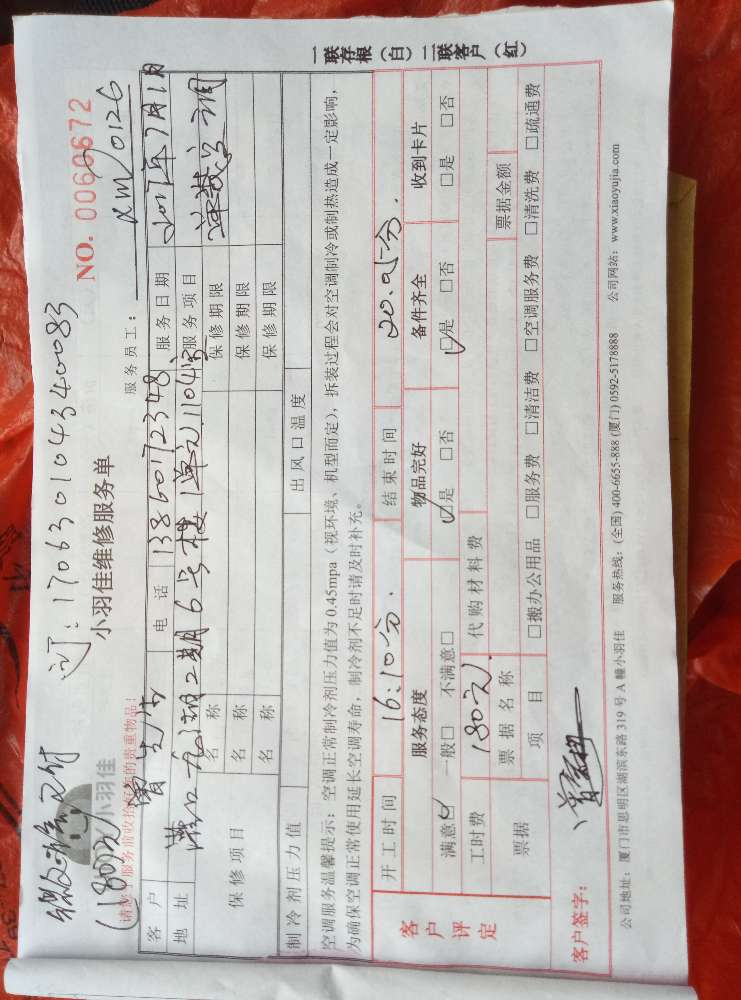 订:170630104340083
(180元)
小羽佳
小羽佳维修服务单
NO. 0060672
请您于服务前收拾好您的贵重物品!
服务员工: XM0126
一联存根(白)二联客户(红)
客户 曾先生 电话 13860172348 服务日期 2017年7月1日
地址 二期6号楼1单元1104室 服务项目 空调
保修项目
名称 保修期限
名称 保修期限
名称 保修期限
制冷剂压力值 出风口温度
空调服务温馨提示:空调正常制冷剂压力值为0.45mpa(视环境、机型而定),拆装过程会对空调制冷或制热造成一定影响,
为确保空调正常使用延长空调寿命,制冷剂不足时请及时补充。
客户评定
开工时间 16:10分. 结束时间 20.05分.
服务态度 物品完好 备件齐全 收到卡片
满意☑ 一般□ 不满意□ ☑是 □否 ☑是 □否 □是 □否
工时费 180元 代购材料费
票据 票据名称 票据金额
项目 □搬办公用品 □服务费 □清洁费 □空调服务费 □清洗费 □疏通费
客户签字:
公司地址:厦门市思明区湖滨东路319号A幢小羽佳 服务热线:(全国)400-6655-888(厦门)0592-5178888 公司网站:www.xiaoyujia.com